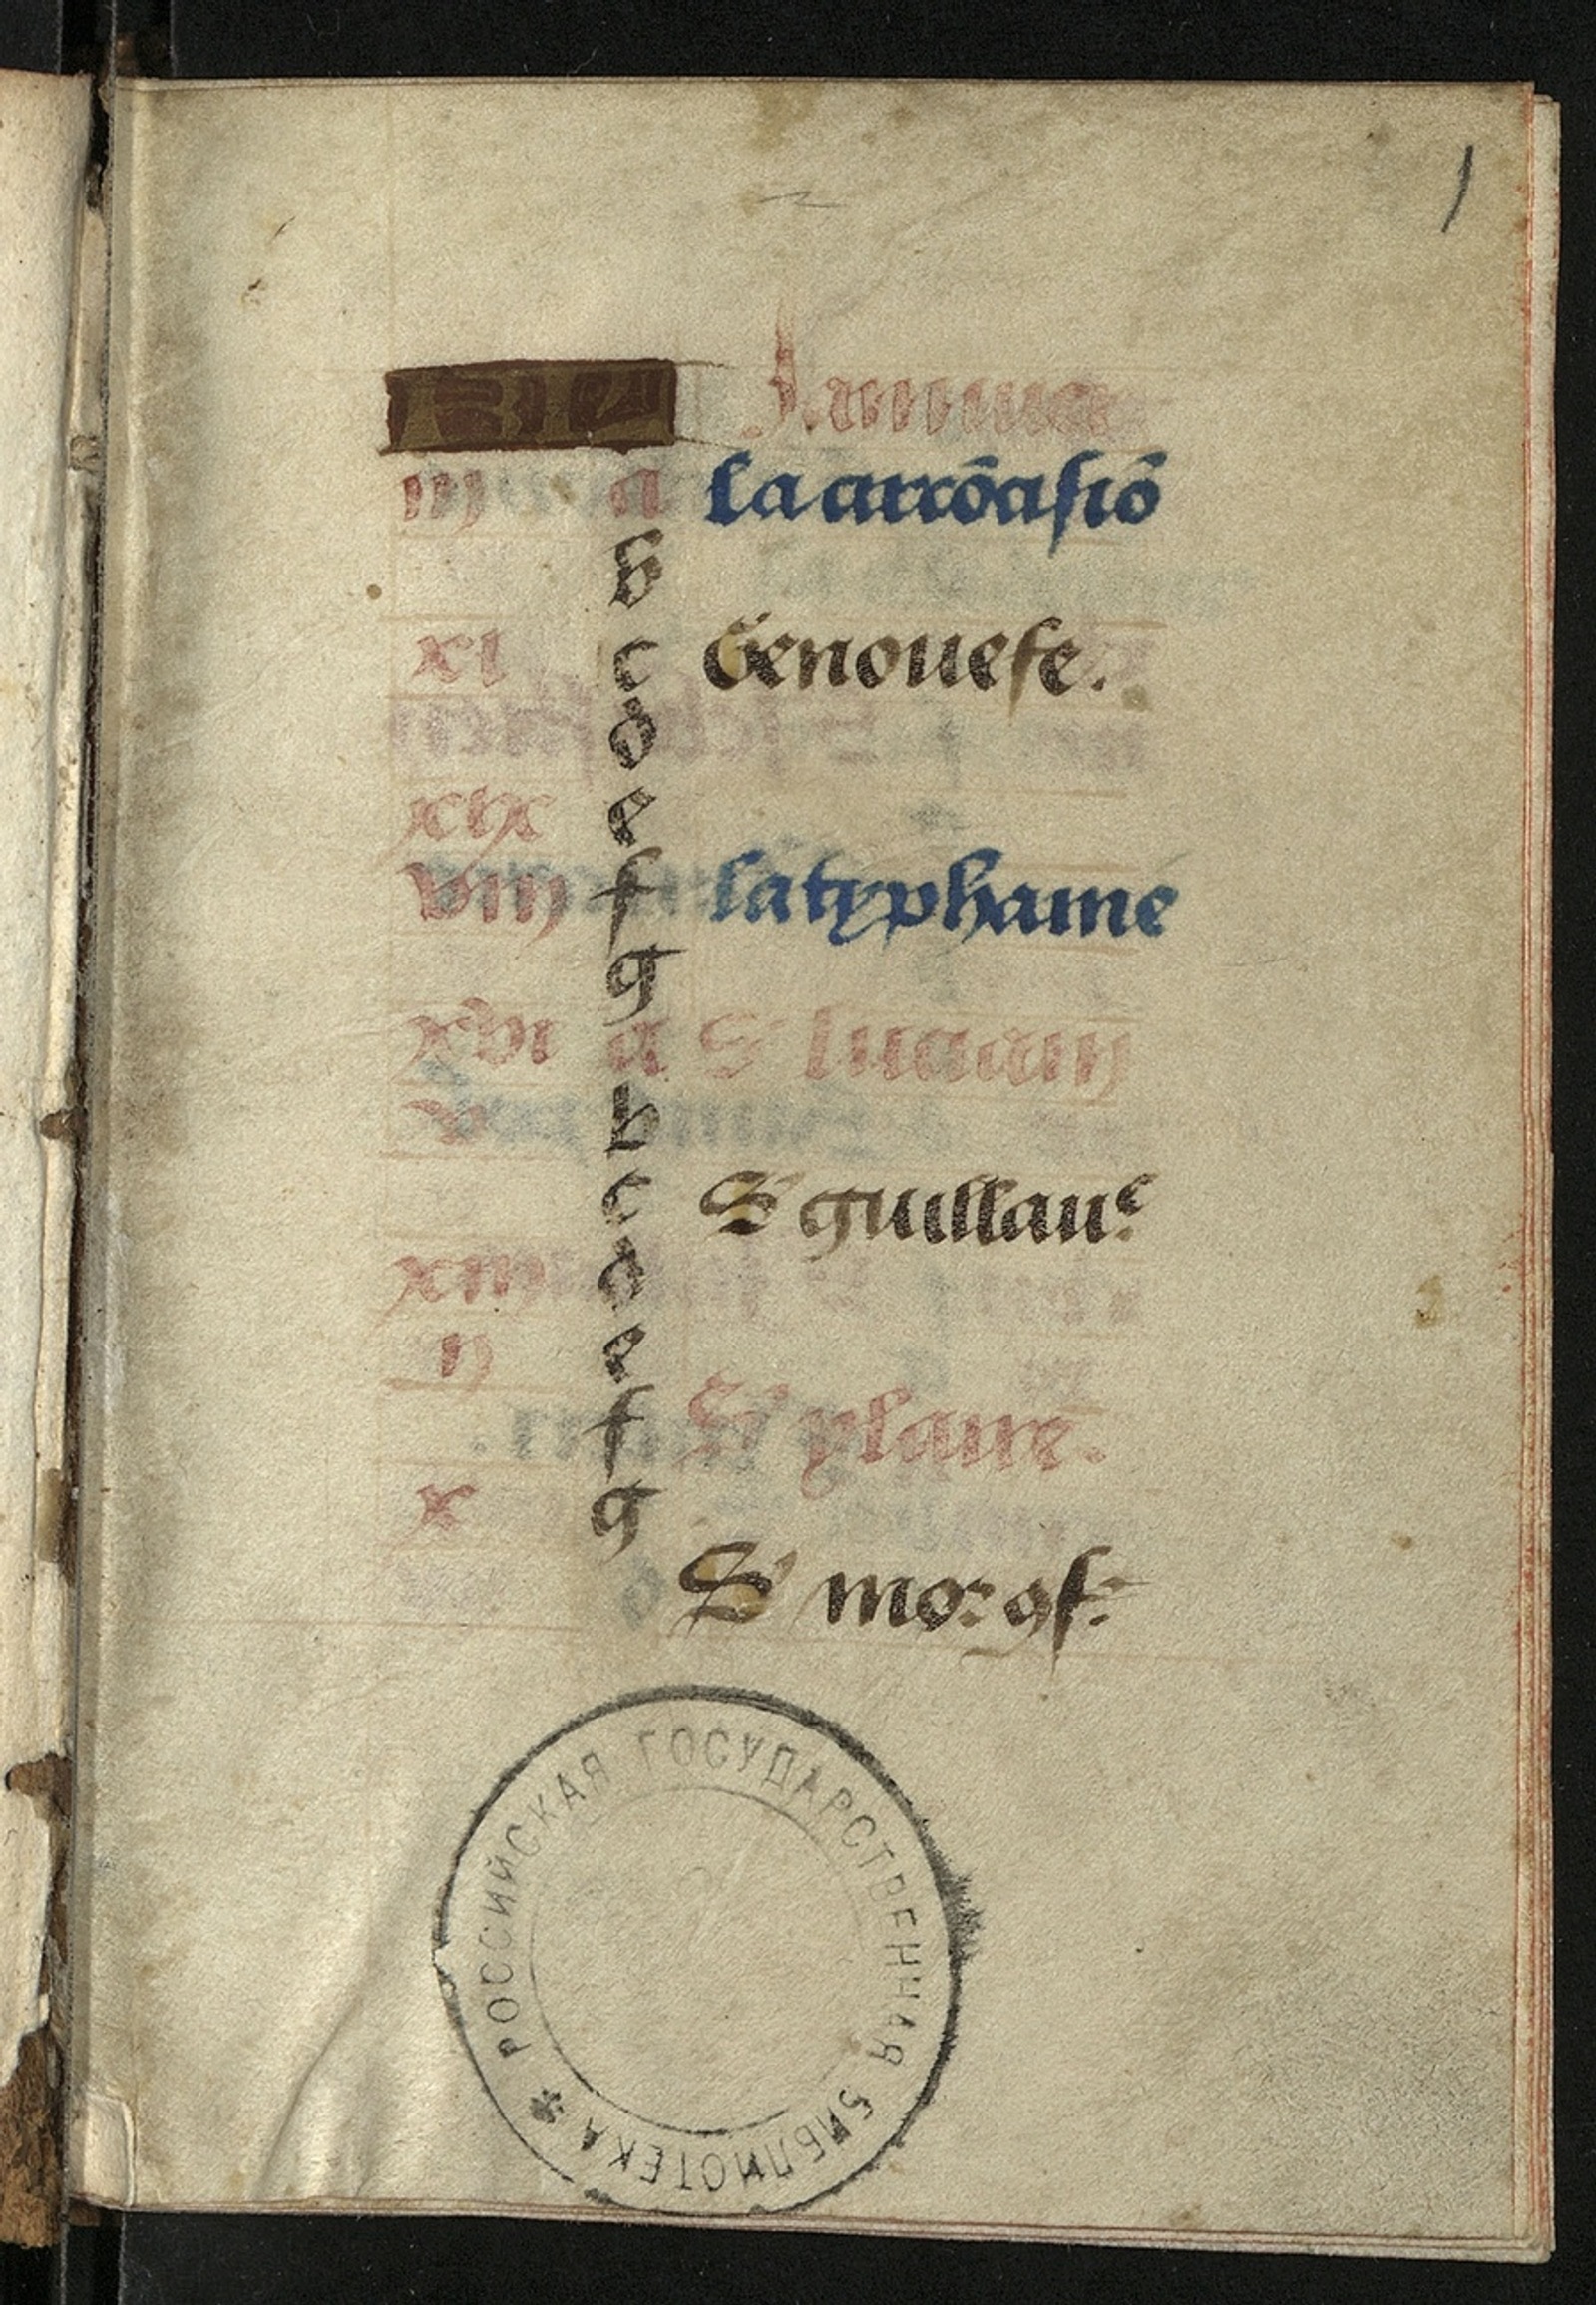 1
Januua
iij a La circōcisiō
b
xi c Genouefe.
d
xix e
viij f la typhaine
g
xvi a S lucain
v b
c S guillauᵉ.
xiij d
ij e
f S ylaire.
x g
S mor 9f
РОССИЙСКАЯ ГОСУДАРСТВЕННАЯ БИБЛИОТЕКА *